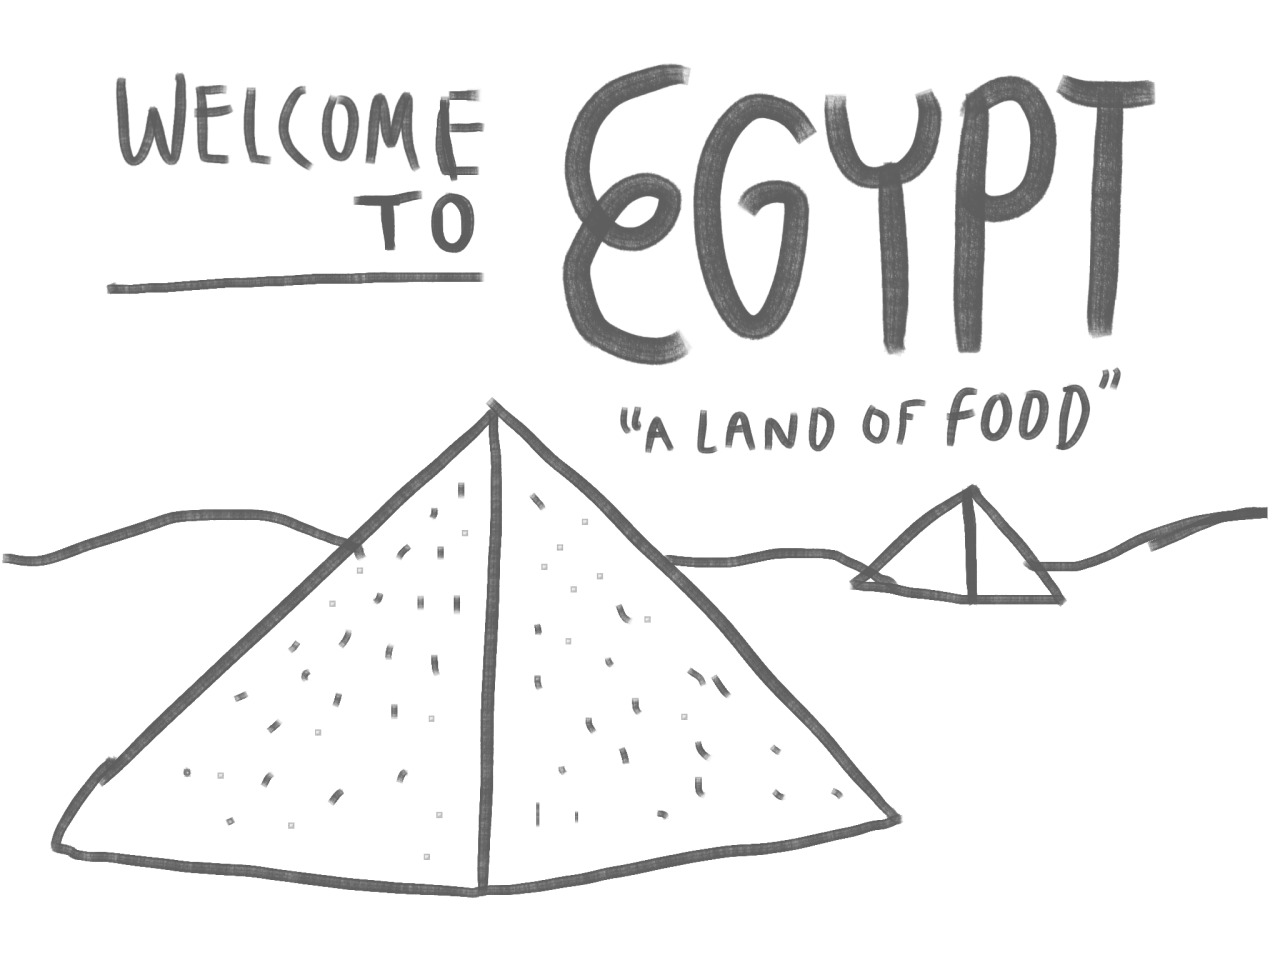 WELCOME
TO
EGYPT
"A LAND OF FOOD"